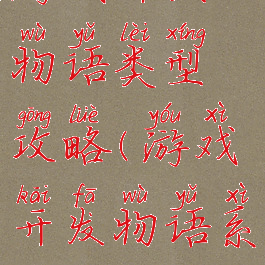 wù yǔ lèi xíng
物语类型
gōng lüè yóu xì
攻略(游戏
kāi fā wù yǔ xì
开发物语系